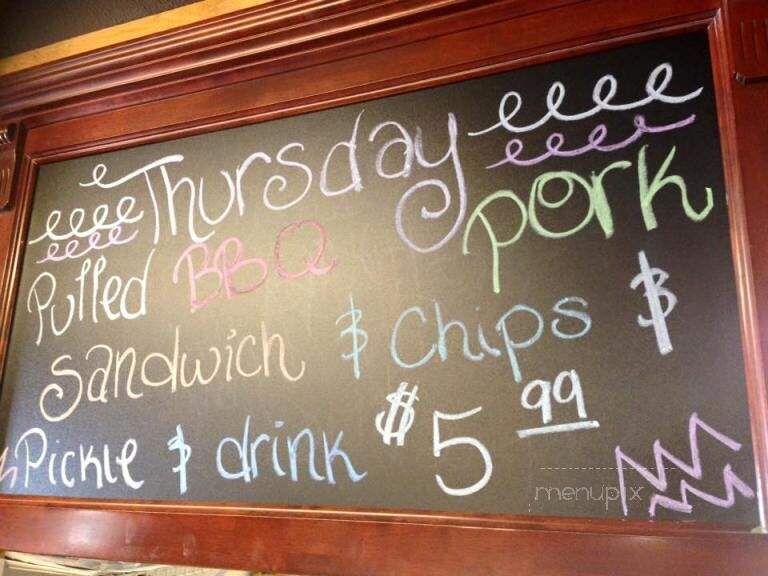 Thursday
Pulled BBQ Pork
Sandwich & Chips &
Pickle & drink $5.99
menupix